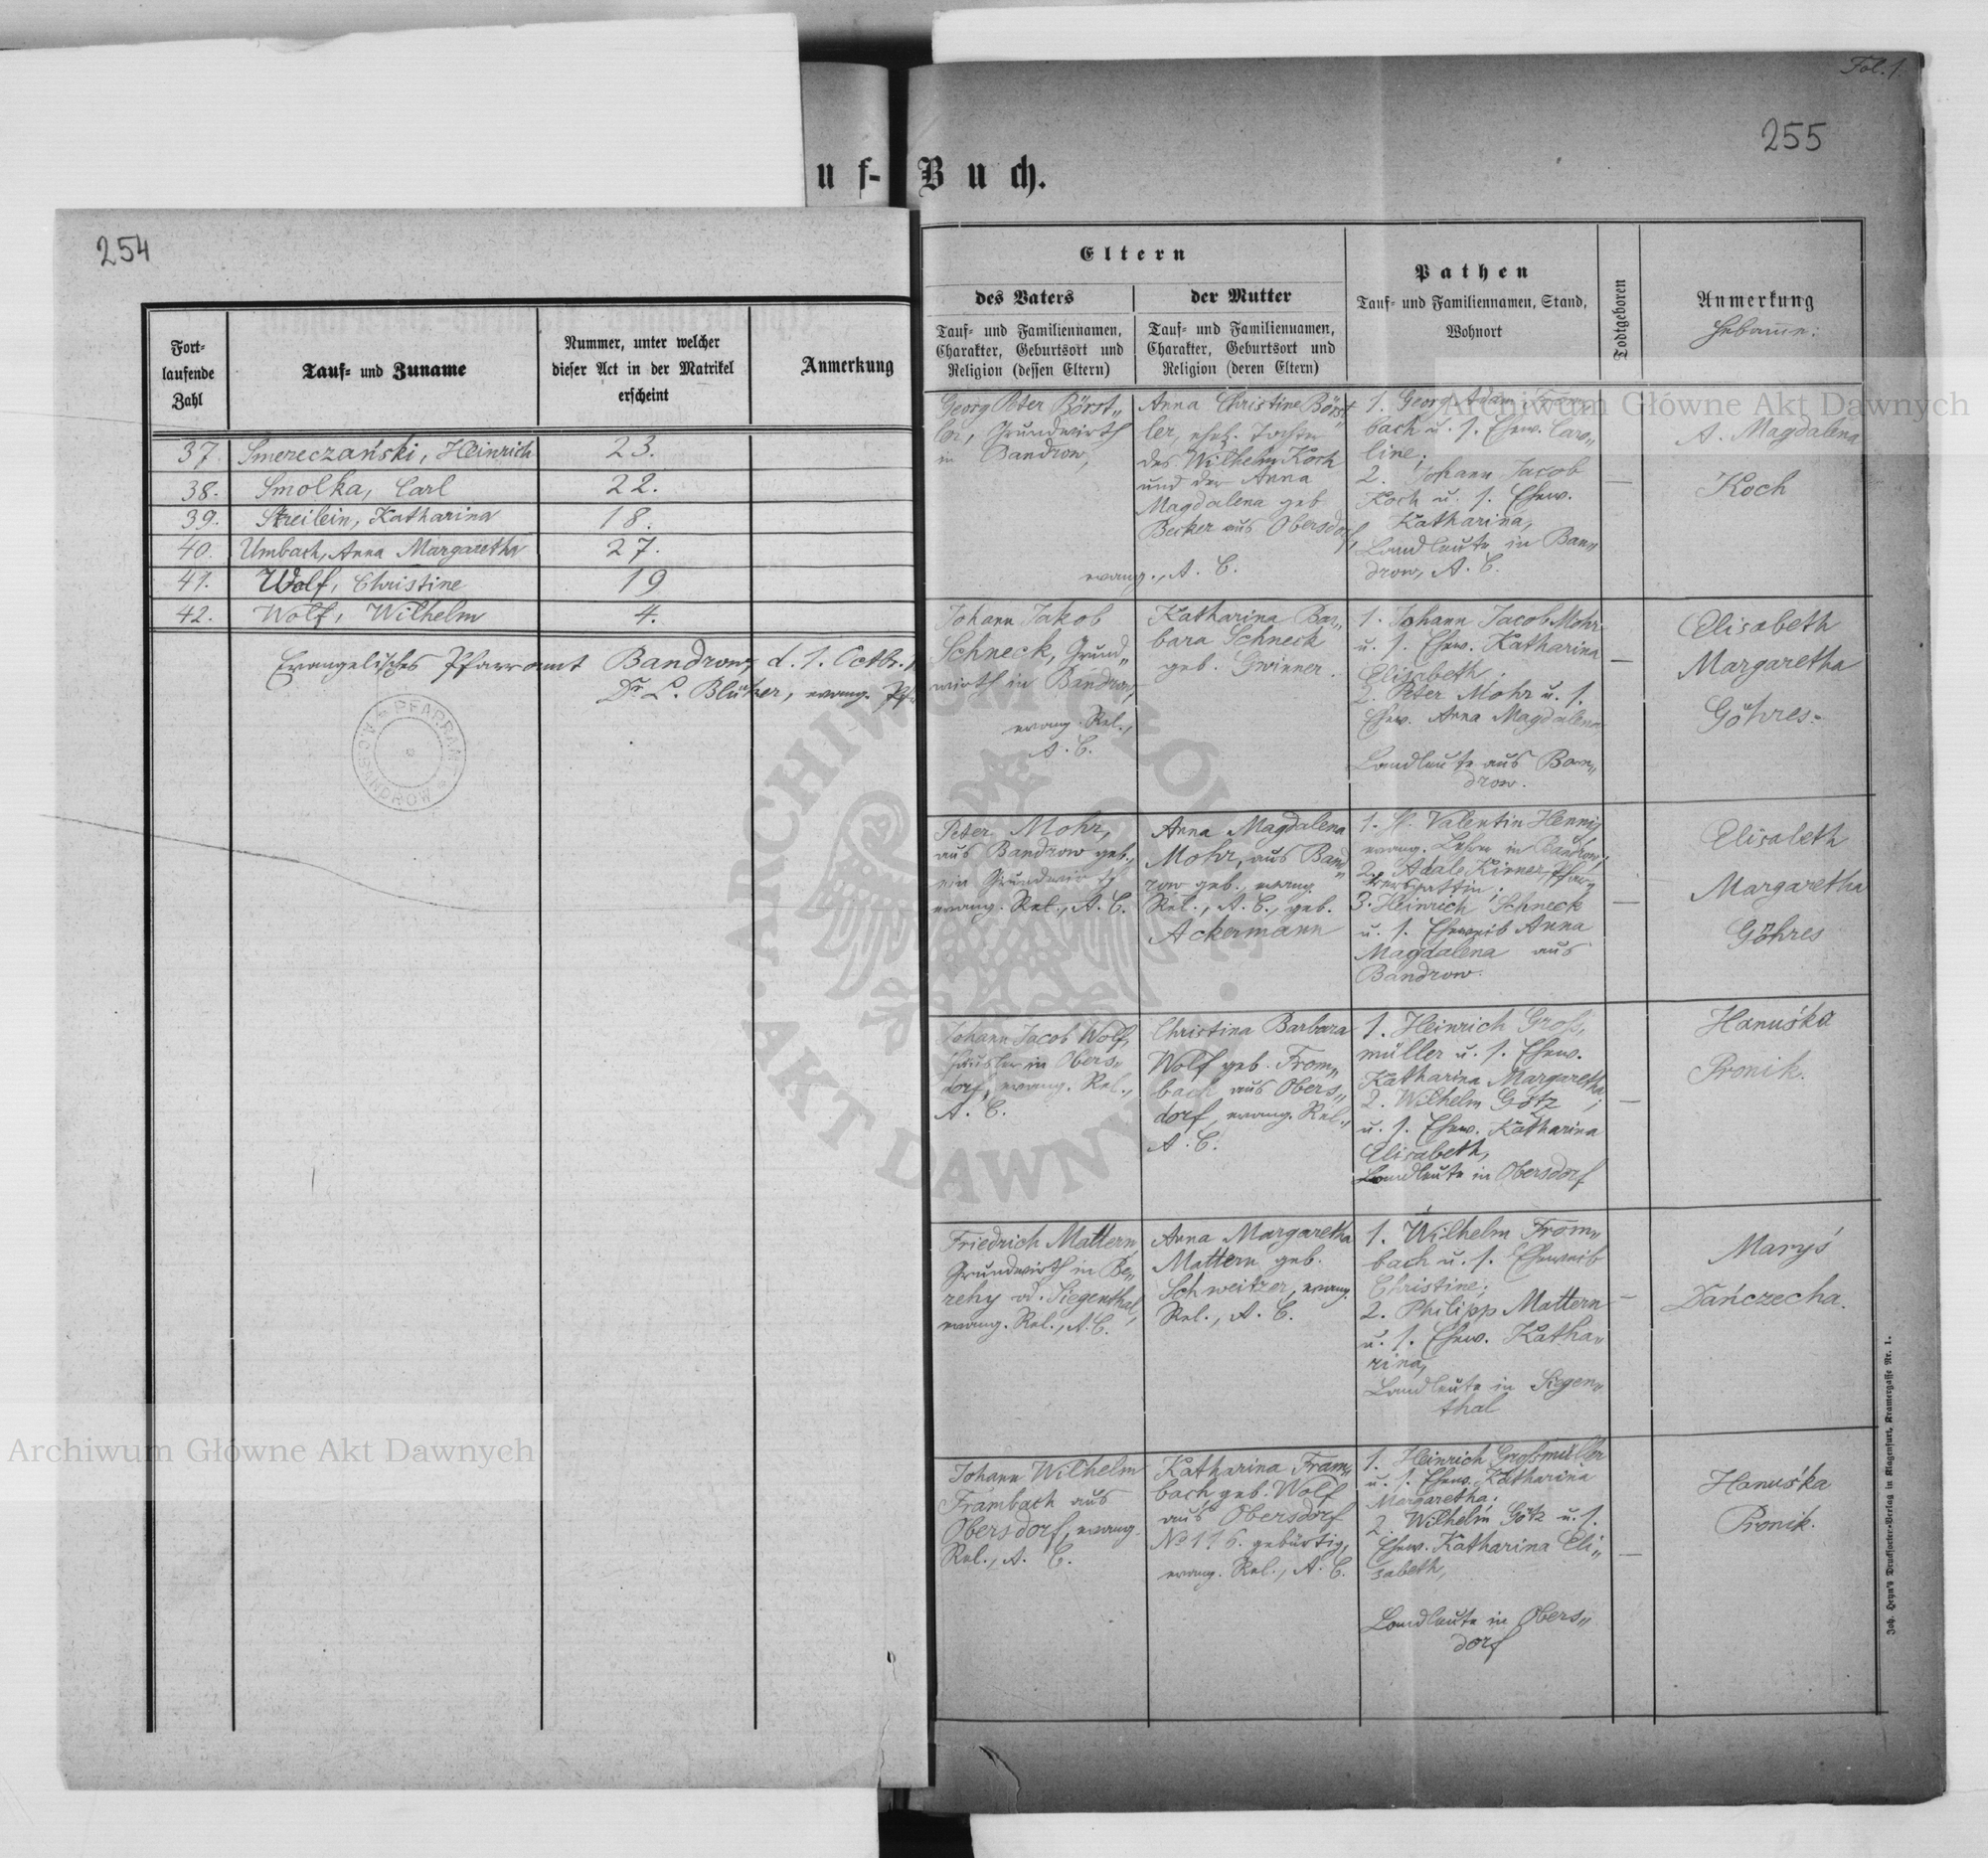 Fol. 1.
255
uf-Buch.
254
Fort-
laufende
Zahl
Tauf- und Zuname
Nummer, unter welcher
dieser Act in der Matrikel
erscheint
Anmerkung
37. Smereczański, Heinrich 23.
38. Smolka, Carl 22.
39. Streilein, Katharina 18.
40. Umbach, Anna Margaretha 27.
41. Wolf, Christine 19
42. Wolf, Wilhelm 4.
Evangelisches Pfarramt Bandrow, d. 1. Octb.
Dr. L. Blücher, evang.
PFARRAMT BANDROW
Eltern
des Vaters
Tauf- und Familiennamen,
Charakter, Geburtsort und
Religion (dessen Eltern)
der Mutter
Tauf- und Familiennamen,
Charakter, Geburtsort und
Religion (deren Eltern)
Pathen
Tauf- und Familiennamen, Stand,
Wohnort
Todtgeboren
Anmerkung
Hebamme:
Georg Peter Börst„
ler, Grundwirth
in Bandrow,
Anna Christine Börst„
ler, ehel. Tochter
des Wilhelm Koch
und der Anna
Magdalena geb
Becker aus Obersdorf,
evang., A. C.
1. Georg Adam From„
bach u. s. Ehew. Caro„
line;
2. Johann Jacob
Koch u. s. Ehew.
Katharina,
Landleute in Ban„
drow, A. C.
—
A. Magdalena
Koch
Johann Jakob
Schneck, Grund„
wirth in Bandrow,
evang. Rel.,
A. C.
Katharina Bar„
bara Schneck
geb. Gwinner.
1. Johann Jacob Mohr
u. s. Ehew. Katharina
Elisabeth;
2. Peter Mohr u. s.
Ehew. Anna Magdalena
Landleute aus Ban„
drow.
—
Elisabeth
Margaretha
Göhres.
Peter Mohr,
aus Bandrow geb.,
ein Grundwirth
evang. Rel., A. C.
Anna Magdalena
Mohr, aus Band„
row geb., evang.
Rel., A. C., geb.
Ackermann
1. H. Valentin Hennig
evang. Lehrer in Bandrow;
2. Adale Kirner, Pfar„
rersgattin;
3. Heinrich Schneck
u. s. Eheweib Anna
Magdalena aus
Bandrow.
—
Elisabeth
Margaretha
Göhres
Johann Jacob Wolf,
Häusler in Obers„
dorf, evang. Rel.,
A. C.
Christina Barbara
Wolf geb. From„
bach aus Obers„
dorf, evang. Rel.,
A. C.
1. Heinrich Groß„
müller u. s. Ehew.
Katharina Margaretha;
2. Wilhelm Götz
u. s. Ehew. Katharina
Elisabeth,
Landleute in Obersdorf
—
Hanuśka
Pronik.
Friedrich Mattern,
Grundwirth in Be„
rehy od. Siegenthal,
evang. Rel., A. C.
Anna Margaretha
Mattern geb.
Schweitzer, evang.
Rel., A. C.
1. Wilhelm From„
bach u. s. Eheweib
Christine;
2. Philipp Mattern
u. s. Ehew. Katha„
rina,
Landleute in Siegen„
thal
—
Maryś
Dańczecha.
Johann Wilhelm
Frambach aus
Obersdorf, evang.
Rel., A. C.
Katharina Fram„
bach geb. Wolf
aus Obersdorf
No 116. gebürtig,
evang. Rel., A. C.
1. Heinrich Großmüller
u. s. Ehew. Katharina
Margaretha;
2. Wilhelm Götz u. s.
Ehew. Katharina Eli„
sabeth,
Landleute in Obers„
dorf
—
Hanuśka
Pronik.
Joh. Heyn's Drucksorten-Verlag in Klagenfurt, Kramergasse Nr. 1.
Archiwum Główne Akt Dawnych
Archiwum Główne Akt Dawnych
ARCHIWUM GŁÓWNE AKT DAWNYCH